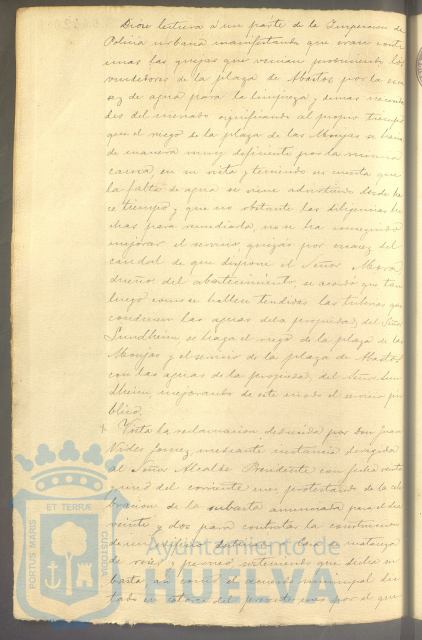 Diose lectura á un parte de la Inspeccion de
Policia urbana manifestando que eran conti
nuas las quejas que venian produciendo los
vendedores de la plaza de Abastos por la esca
sez de agua para la limpieza y demas necesida
des del mercado significando al propio tiempo
que el riego de la plaza de las Monjas se hacia
de manera muy deficiente por la misma
causa, en su vista y teniendo en cuenta que
la falta de agua se viene advirtiendo desde ha
ce tiempo y que no obstante las diligencias he
chas para remediarla, no se ha conseguido
mejorar el servicio, quizás por escasez del
caudal de que dispone el Señor Mora
dueño del abastecimiento, se acordó que tan
luego como se hallen tendidas las tuberias que
conducen las aguas de la propiedad del Señor
Sundheim, se haga el riego de la plaza de las
Monjas y el servicio de la plaza de Abastos
con las aguas de la propiedad del Señor Sun
dheim, mejorando de este modo el servicio pú
blico.
Vista la reclamacion deducida por Don Juan
Vides Gomez, mediante instancia dirigida
al Señor Alcalde Presidente con fecha veinte
y uno del corriente mes, protestando de la cele
bracion de la subasta anunciada para el dia
veinte y dos para contratar la construccion
de un edificio destinado a la matanza
de reses, y
basta así como el acuerdo municipal dic
tado en
PORTUS MARIS ET TERRÆ CUSTODIA
Ayuntamiento de
HUELVA